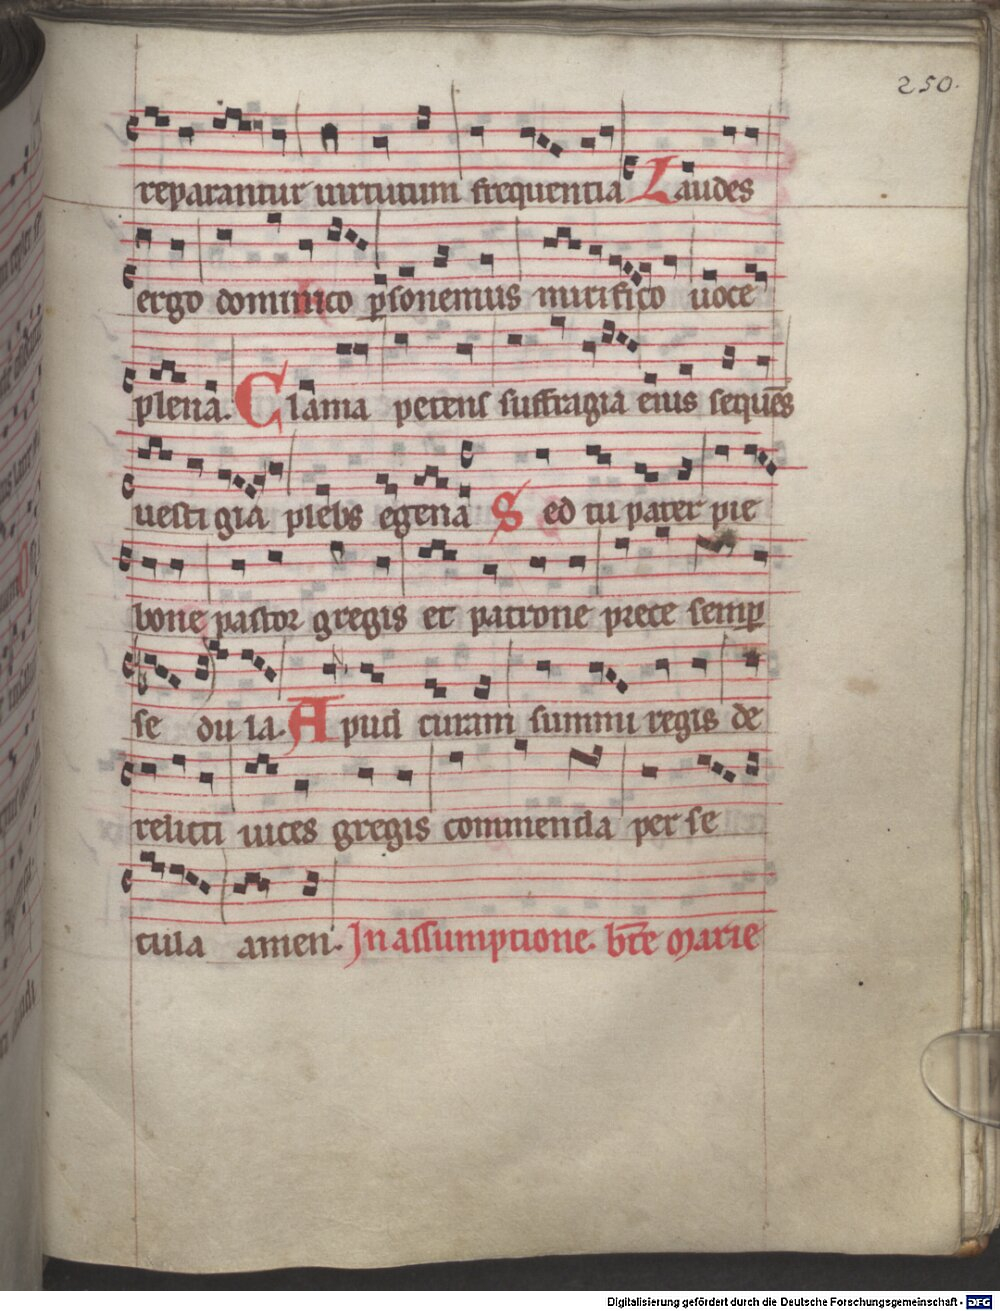 250.
reparantur uirtutum frequentia Laudes
ergo dominico ꝑsonemus mirifico uoce
plena. Clama petens suffragia eius sequēs
uesti gia plebs egena Sed tu pater pie
bone pastor gregis et patrone prece semꝑ
se du la. Apud curam summi regis de
relicti uices gregis commenda per se
cula amen. In assumptione. bt̄e marie
Digitalisierung gefördert durch die Deutsche Forschungsgemeinschaft - DFG